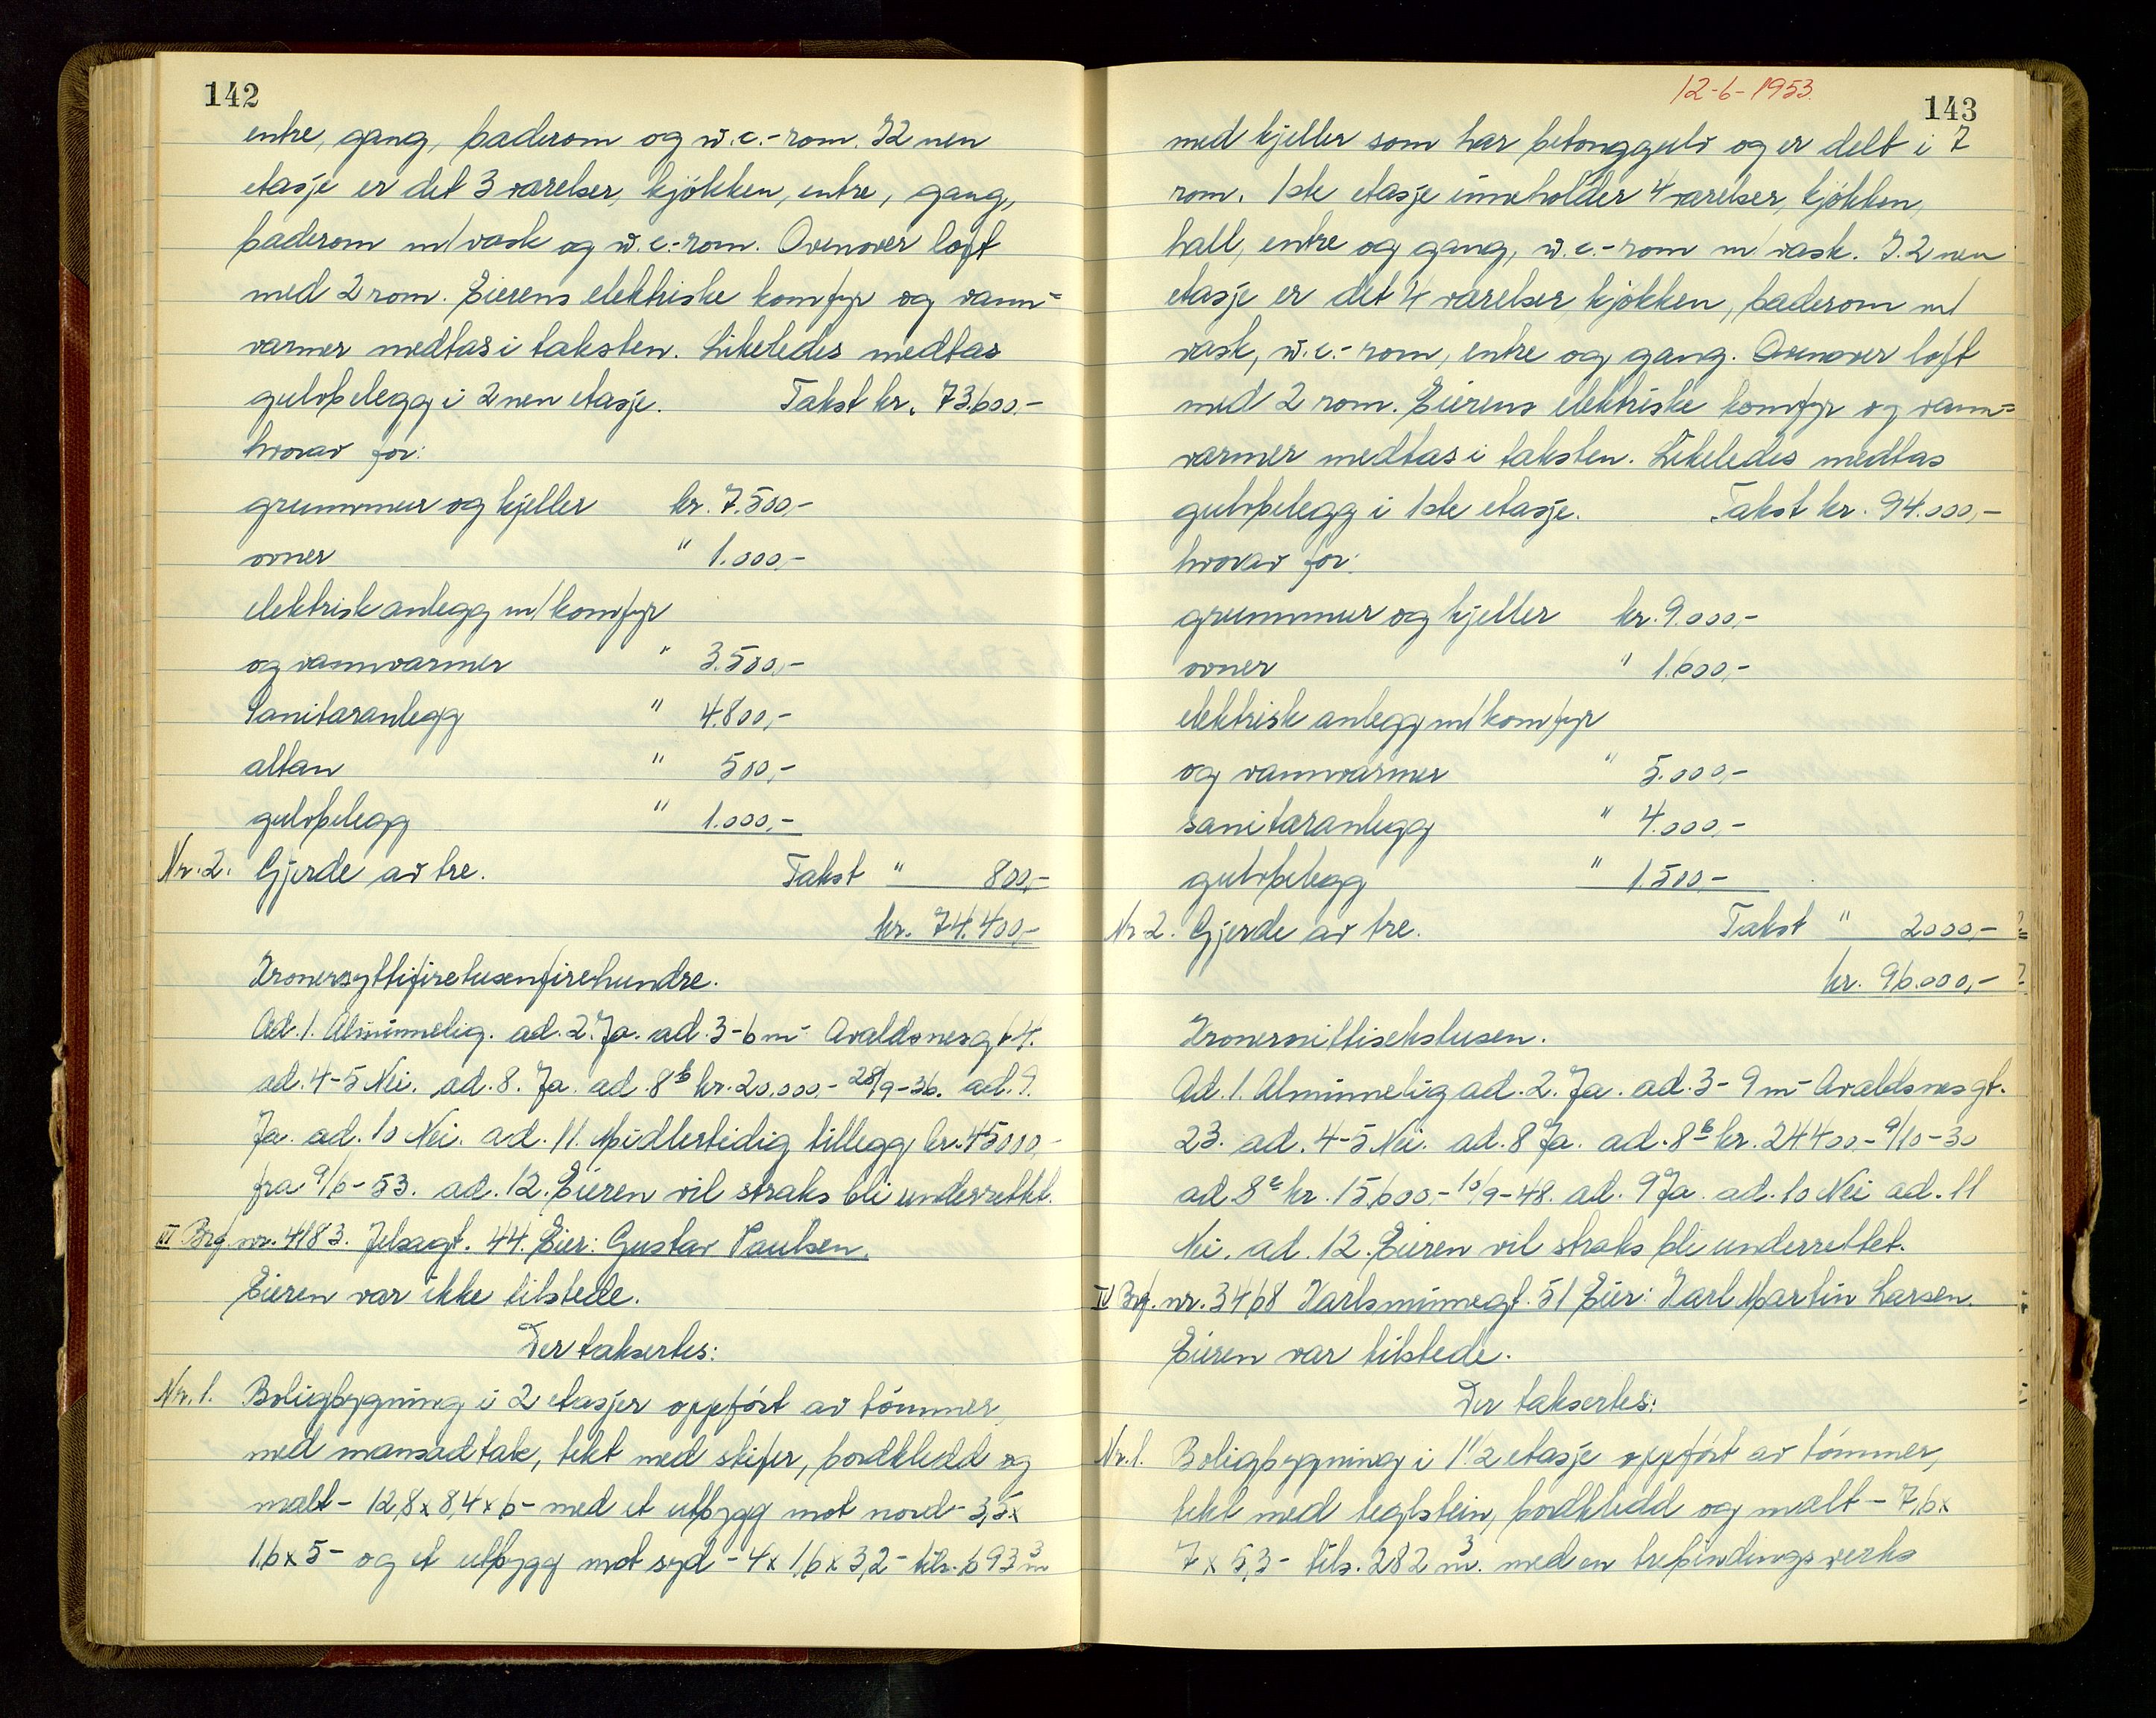 142
entre, gang, baderom og w.c.-rom. I 2 nen
etasje er det 3 værelser, kjökken, entre, gang,
baderom m/vask og w.c.-rom. Ovenover loft
med 2 rom. Eierens elektriske komfyr og vann=
varmer medtas i taksten. Likeledes medtas
gulvbelegg i 2nen etasje. Takst kr. 73.600.-
hvorav for:
grunnmur og kjeller kr. 7.500,-
ovner " 1.000,-
elektrisk anlegg m/komfyr
og vannvarmer " 3.500,-
Sanitæranlegg " 4.800,-
altan " 500,-
gulvbelegg " 1.000,-
Nr. 2. Gjerde av tre. Takst " 800,-
kr. 74.400,-
Kronersyttifiretusenfirehundre.
Ad. 1. Alminnelig. ad. 2. Ja. ad. 3 - 6 m - Avaldsnesgt 4.
ad. 4-5 Nei. ad. 8. Ja. ad. 8b kr. 20.000,- 28/9-36. ad. 9.
Ja. ad. 10 Nei. ad. 11. Midlertidig tillegg kr. 45000,-
fra 9/6-53. ad. 12. Eieren vil straks bli underrettet.
III Brg. nr. 4183. Jelsagt. 44. Eier: Gustav Paulsen.
Eieren var ikke tilstede.
Der taksertes:
Nr. 1. Boligbygning i 2 etasjer oppfört av tömmer,
med mansardtak, tekt med skifer, bordkledd og
malt - 12,8 x 8,4 x 6 - med et utbygg mot nord - 3,5 x
1,6 x 5 - og et utbygg mot syd - 4 x 1,6 x 3,2 - tils. 693 m3
12-6-1953.
143
med kjeller som har betonggulv og er delt i 7
rom. 1ste etasje inneholder 4 værelser, kjökken,
hall, entre og gang, w.c.-rom m/vask. I 2 nen
etasje er det 4 værelser kjökken, baderom m/
vask, w.c.-rom, entre og gang. Ovenover loft
med 2 rom. Eierens elektriske komfyr og vann=
varmer medtas i taksten. Likeledes medtas
gulvbelegg i 1ste etasje. Takst kr. 94.000,-
hvorav for:
grunnmur og kjeller kr. 9.000,-
ovner " 1.600,-
elektrisk anlegg m/komfyr
og vannvarmer " 5.000,-
sanitæranlegg " 4.000,-
gulvbelegg " 1.500,-
Nr. 2. Gjerde av tre. Takst " 2000,-
kr. 96.000,-
Kronernittisekstusen.
Ad. 1. Alminnelig ad. 2. Ja. ad. 3 - 9 m - Avaldsnesgt.
23. ad. 4-5 Nei. ad. 8 Ja. ad. 8b kr. 24400,- 9/10-30
ad. 8c kr. 15.600,- 10/9-48. ad. 9 Ja. ad. 10 Nei ad. 11
Nei. ad. 12. Eieren vil straks bli underrettet.
IV Brg. nr. 3468 Karlsminnegt. 51 Eier: Karl Martin Larsen.
Eieren var tilstede.
Der taksertes:
Nr. 1. Boligbygning i 1 1/2 etasje oppfört av tömmer,
tekt med teglstein, bordkledd og malt - 7,6 x
7 x 5,3 - tils. 282 m3. med en trebindingsverks